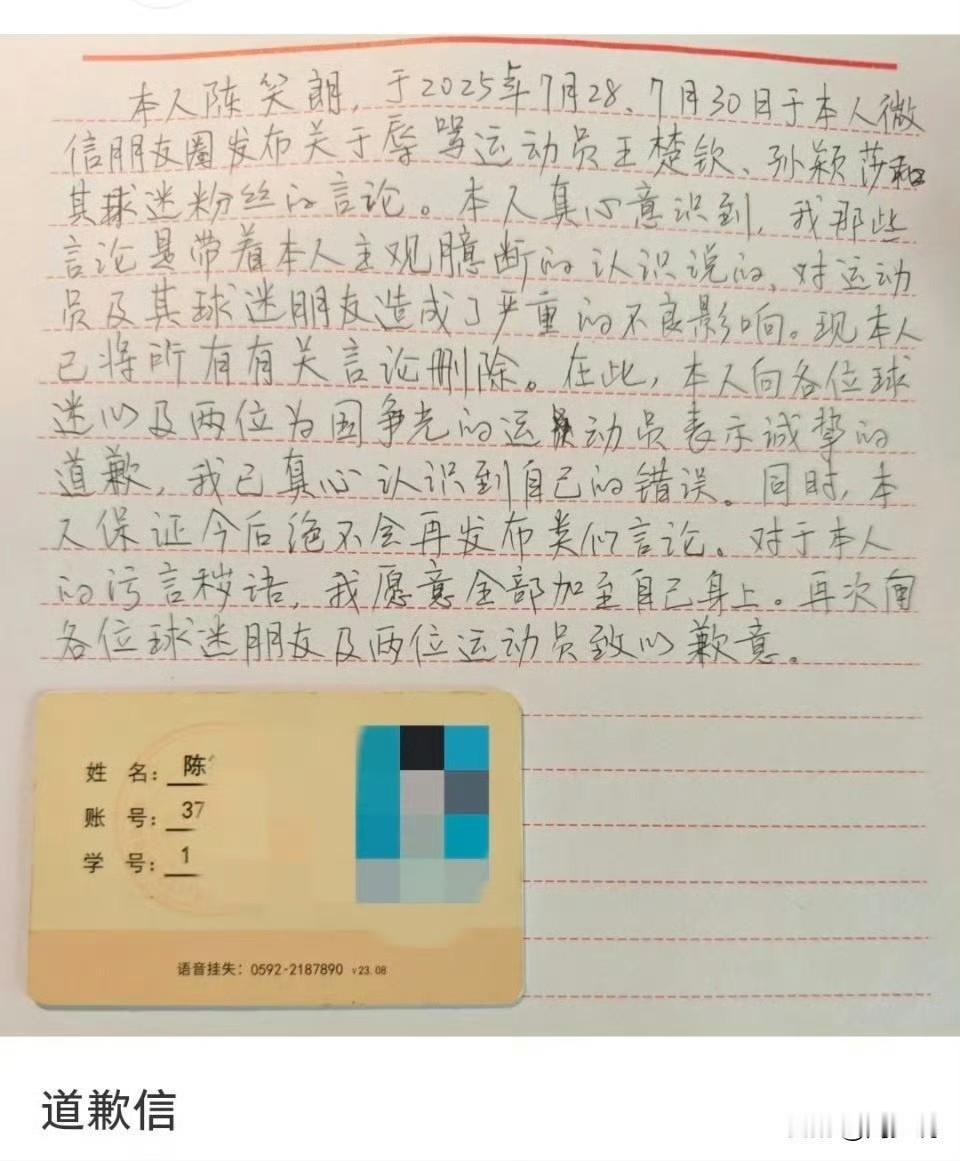 本人陈笑朗，于2025年7月28、7月30日于本人微
信朋友圈发布关于辱骂运动员王楚钦、孙颖莎和
其球迷粉丝的言论。本人真心意识到，我那些
言论是带着本人主观臆断的认识说的，对运动
员及其球迷朋友造成了严重的不良影响。现本人
已将所有有关言论删除。在此，本人向各位球
迷以及两位为国争光的运动员表示诚挚的
道歉，我已真心认识到自己的错误。同时，本
人保证今后绝不会再发布类似言论。对于本人
的污言秽语，我愿意全部加至自己身上。再次向
各位球迷朋友及两位运动员致以歉意。
姓 名：陈
账 号：37
学 号：1
语音挂失：0592-2187890 v23.08
道歉信